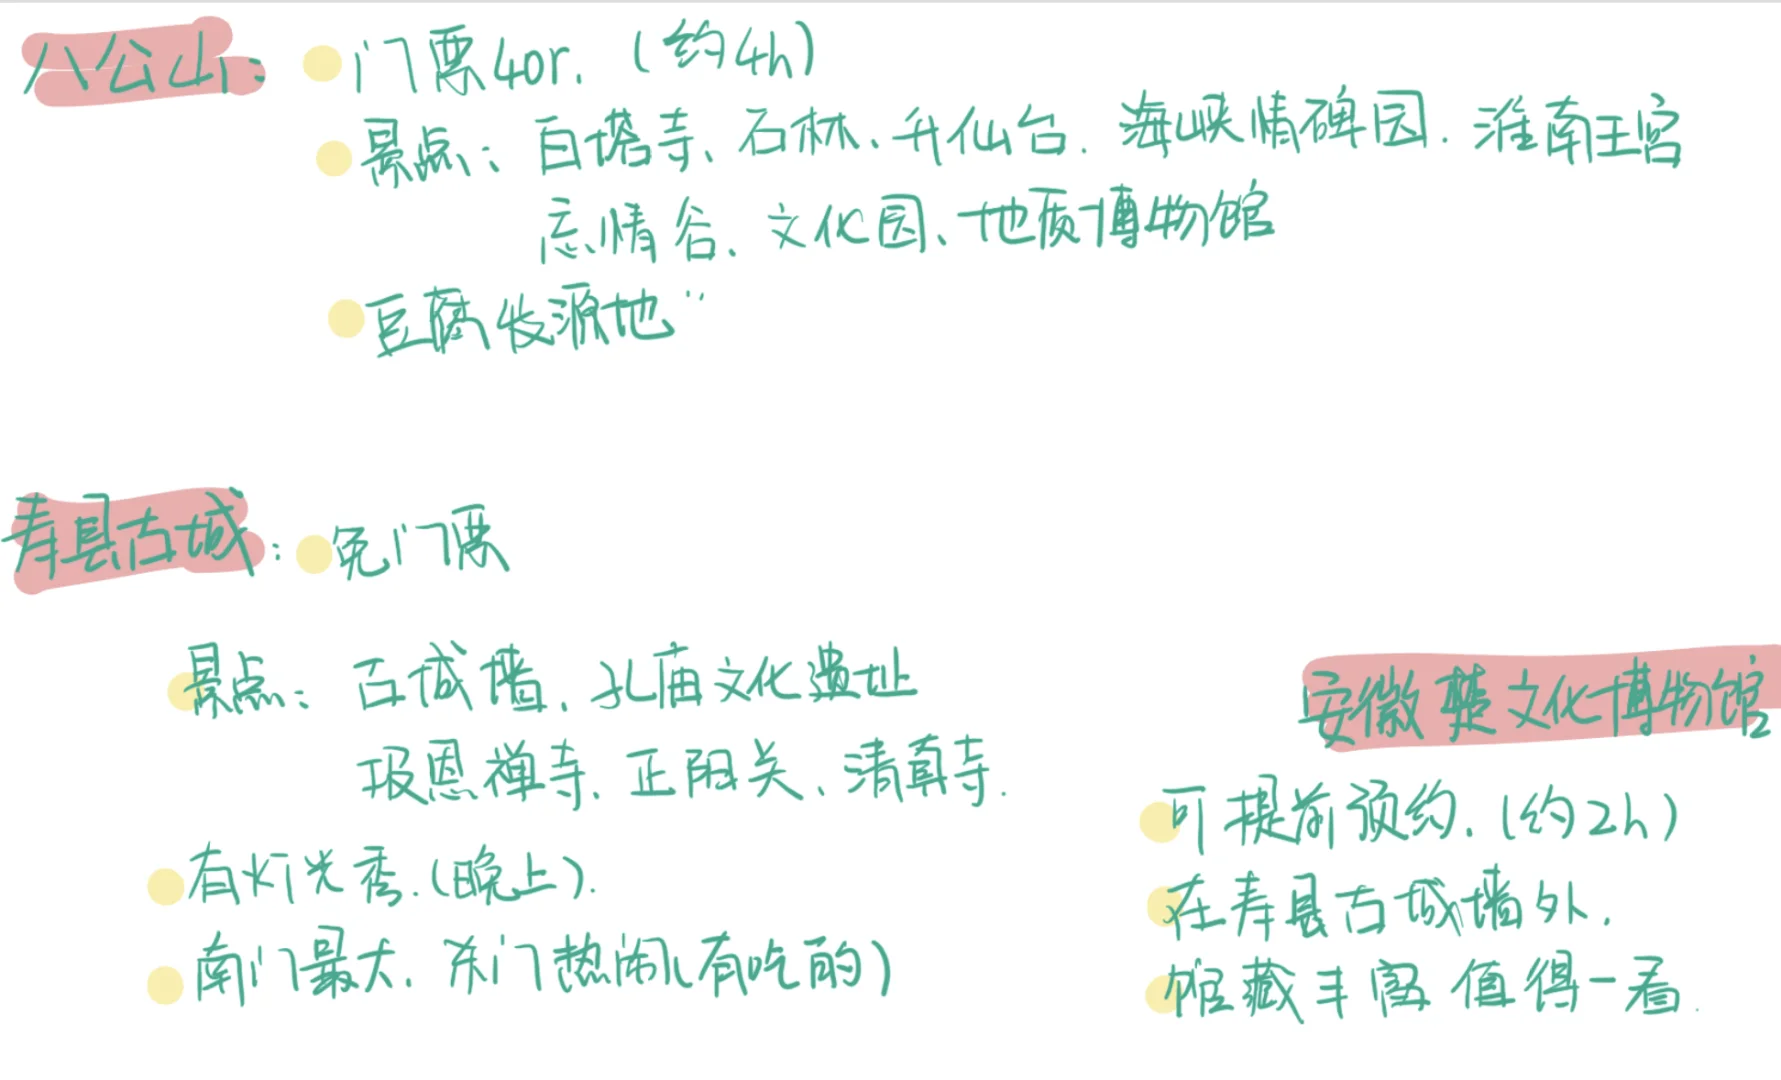 八公山: 门票40r. (约4h)
景点: 白塔寺、石林、升仙台. 海峡情碑园. 淮南王宫
忘情谷、文化园、地质博物馆
豆腐发源地"
寿县古城: 免门票
景点: 古城墙、孔庙文化遗址
报恩禅寺、正阳关、清真寺.
有灯光秀.(晚上).
南门最大. 东门热闹(有吃的)
安徽楚文化博物馆
可提前预约. (约2h)
在寿县古城墙外.
馆藏丰富 值得一看.